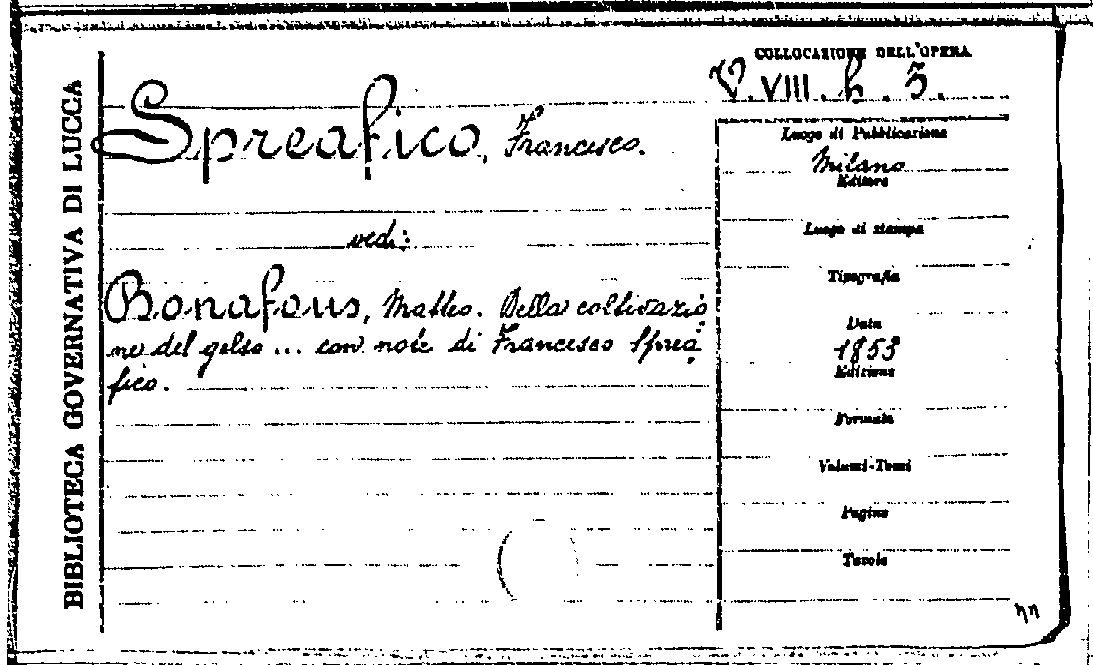 BIBLIOTECA GOVERNATIVA DI LUCCA
COLLOCAZIONE DELL'OPERA
V. VIII. h. 5.
Spreafico, Francesco.
vedi:
Bonafous, Matteo. Della coltivazio
ne del gelso ... con note di Francesco Sprea
fico.
Luogo di Pubblicazione
Milano
Editore
Luogo di stampa
Tipografia
Data
1853
Edizione
Formato
Volumi-Tomi
Pagine
Tavole